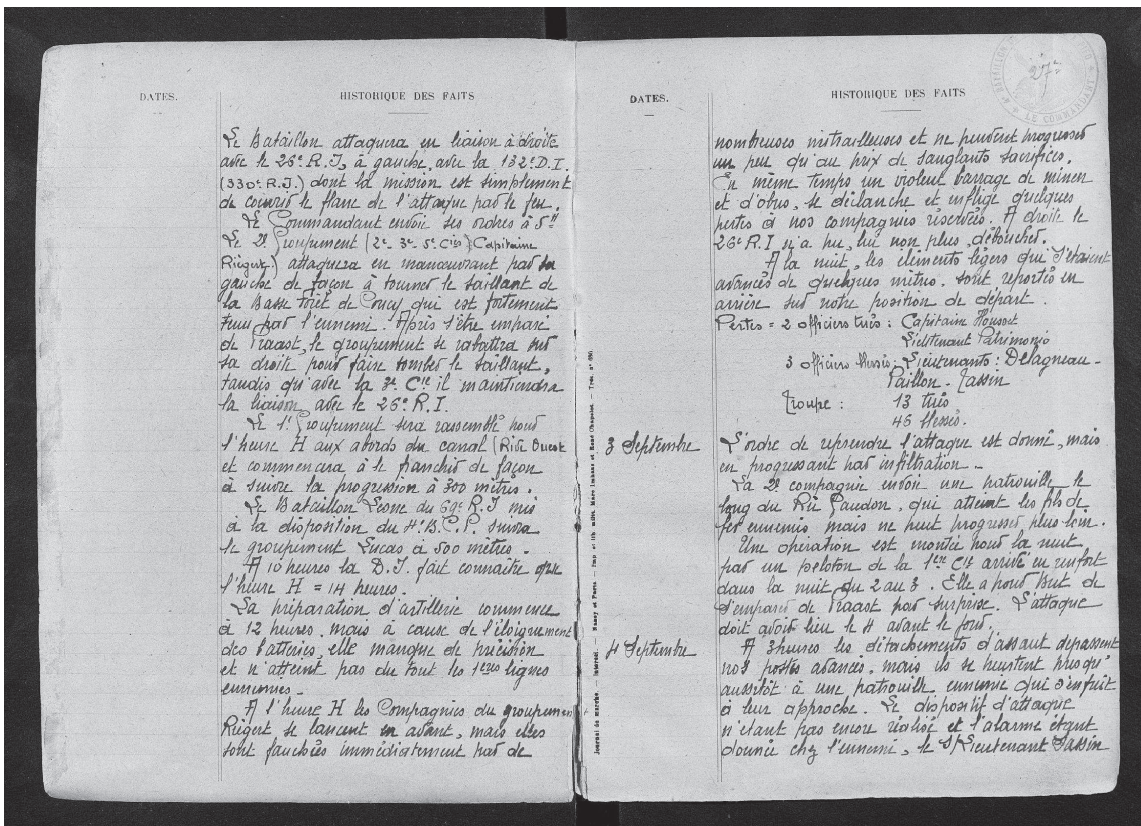 DATES.
HISTORIQUE DES FAITS
Le Bataillon attaquera en liaison à droite
avec le 26e R.I, à gauche, avec la 132e D.I.
(330e R.I.) dont la mission est simplement
de couvrir le flanc de l'attaque par le feu.
Le Commandant envoie ses ordres à 5H
Le 2e Groupement (2e. 3e. 5e Cies) (Capitaine
Riegert) attaquera en manœuvrant par sa
gauche de façon à tourner le saillant de
la Basse forêt de Coucy qui est fortement
tenu par l'ennemi. Après s'être emparé
de Praast, le groupement se rabattra sur
sa droite pour faire tomber le saillant,
tandis qu'avec la 3e Cie il maintiendra
la liaison avec le 26e R.I.
Le 1er Groupement sera rassemblé pour
l'heure H aux abords du canal (Rive Ouest
et commencera à le franchir de façon
à suivre la progression à 300 mètres.
Le Bataillon Lesne du 69e R.I mis
à la disposition du 4e B.C.P. suivra
le groupement Lucas à 500 mètres.
A 10 heures la D.I. fait connaître que
l'heure H = 14 heures.
La préparation d'artillerie commence
à 12 heures, mais à cause de l'éloignement
des batteries, elle manque de précision
et n'atteint pas du tout les 1eres lignes
ennemies.
A l'heure H les Compagnies du groupement
Riegert, se lancent en avant, mais elles
sont fauchées immédiatement par de
DATES.
HISTORIQUE DES FAITS
27e
LE COMMANDANT
nombreuses mitrailleuses et ne peuvent progresser
un peu qu'au prix de sanglants sacrifices.
En même temps un violent barrage de minen
et d'obus, se déclanche et inflige quelques
pertes à nos compagnies réservées. A droite le
26e R.I n'a pu, lui non plus, déboucher.
A la nuit, les éléments légers qui s'étaient
avancés de quelques mètres, sont reportés en
arrière sur notre position de départ.
Pertes = 2 officiers tués : Capitaine Housset
Lieutenant Patrimonio
3 officiers blessés : Lieutenants : Delagneau -
Paillon - Jassin
Troupe : 13 tués
46 blessés.
3 Septembre
L'ordre de reprendre l'attaque est donné, mais
en progressant par infiltration.
La 2e compagnie envoie une patrouille le
long du Rû Gaudon, qui atteint les fils de
fer ennemis mais ne peut progresser plus loin.
Une opération est montée pour la nuit
par un peloton de la 1ere Cie arrivé en renfort
dans la nuit du 2 au 3. Elle a pour but de
s'emparer de Praast par surprise. L'attaque
doit avoir lieu le 4 avant le jour.
4 Septembre
A 3 heures les détachements d'assaut dépassent
nos postes avancés, mais ils se heurtent presqu'
aussitôt à une patrouille ennemie qui s'enfuit
à leur approche. Le dispositif d'attaque
n'étant pas encore réalisé et l'alarme étant
donnée chez l'ennemi, le S/Lieutenant Jassin